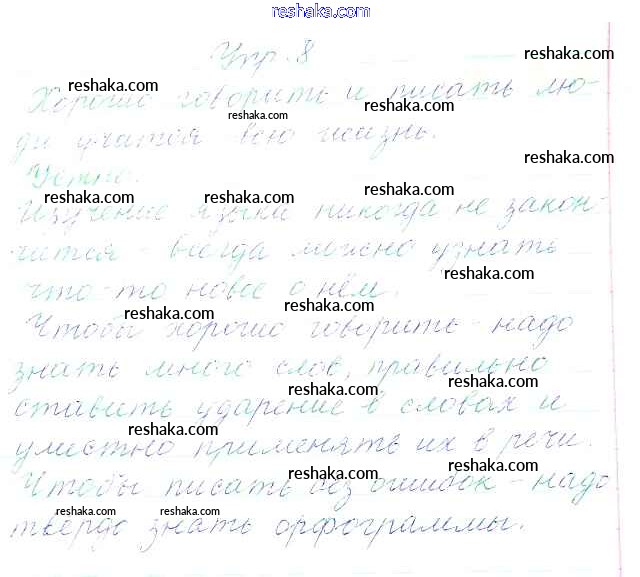 reshaka.com
Упр. 8
reshaka.com
reshaka.com
Хорошо говорить и писать лю-
reshaka.com
reshaka.com
ди учатся всю жизнь.
reshaka.com
Устно.
reshaka.com reshaka.com reshaka.com
Изучение языки никогда не закон-
чится - всегда можно узнать
reshaka.com
что-то новое о нём.
reshaka.com reshaka.com
Чтобы хорошо говорить - надо
знать много слов, правильно
reshaka.com reshaka.com
ставить ударение в словах и
reshaka.com
уместно применять их в речи.
reshaka.com reshaka.com
Чтобы писать без ошибок - надо
reshaka.com reshaka.com
твёрдо знать орфограммы.